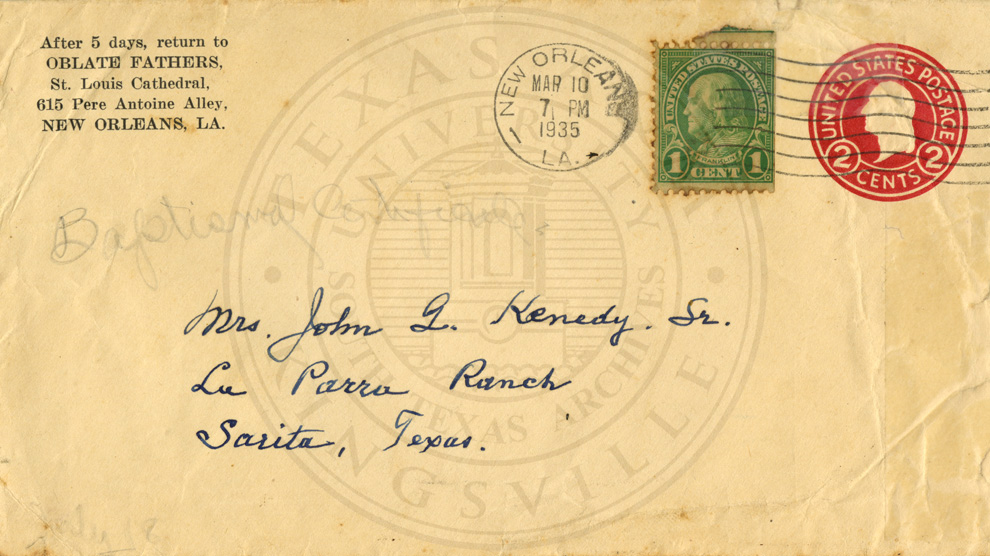 After 5 days, return to
OBLATE FATHERS,
St. Louis Cathedral,
615 Pere Antoine Alley,
NEW ORLEANS, LA.
NEW ORLEANS
MAR 10
7 PM
1935
LA.
UNITED STATES POSTAGE
FRANKLIN
1 CENT 1
UNITED STATES POSTAGE
2 CENTS 2
Baptismal Certificate.
Mrs. John G. Kenedy. Sr.
La Parra Ranch
Sarita, Texas.
TEXAS A&I UNIVERSITY
SOUTH TEXAS ARCHIVES
KINGSVILLE